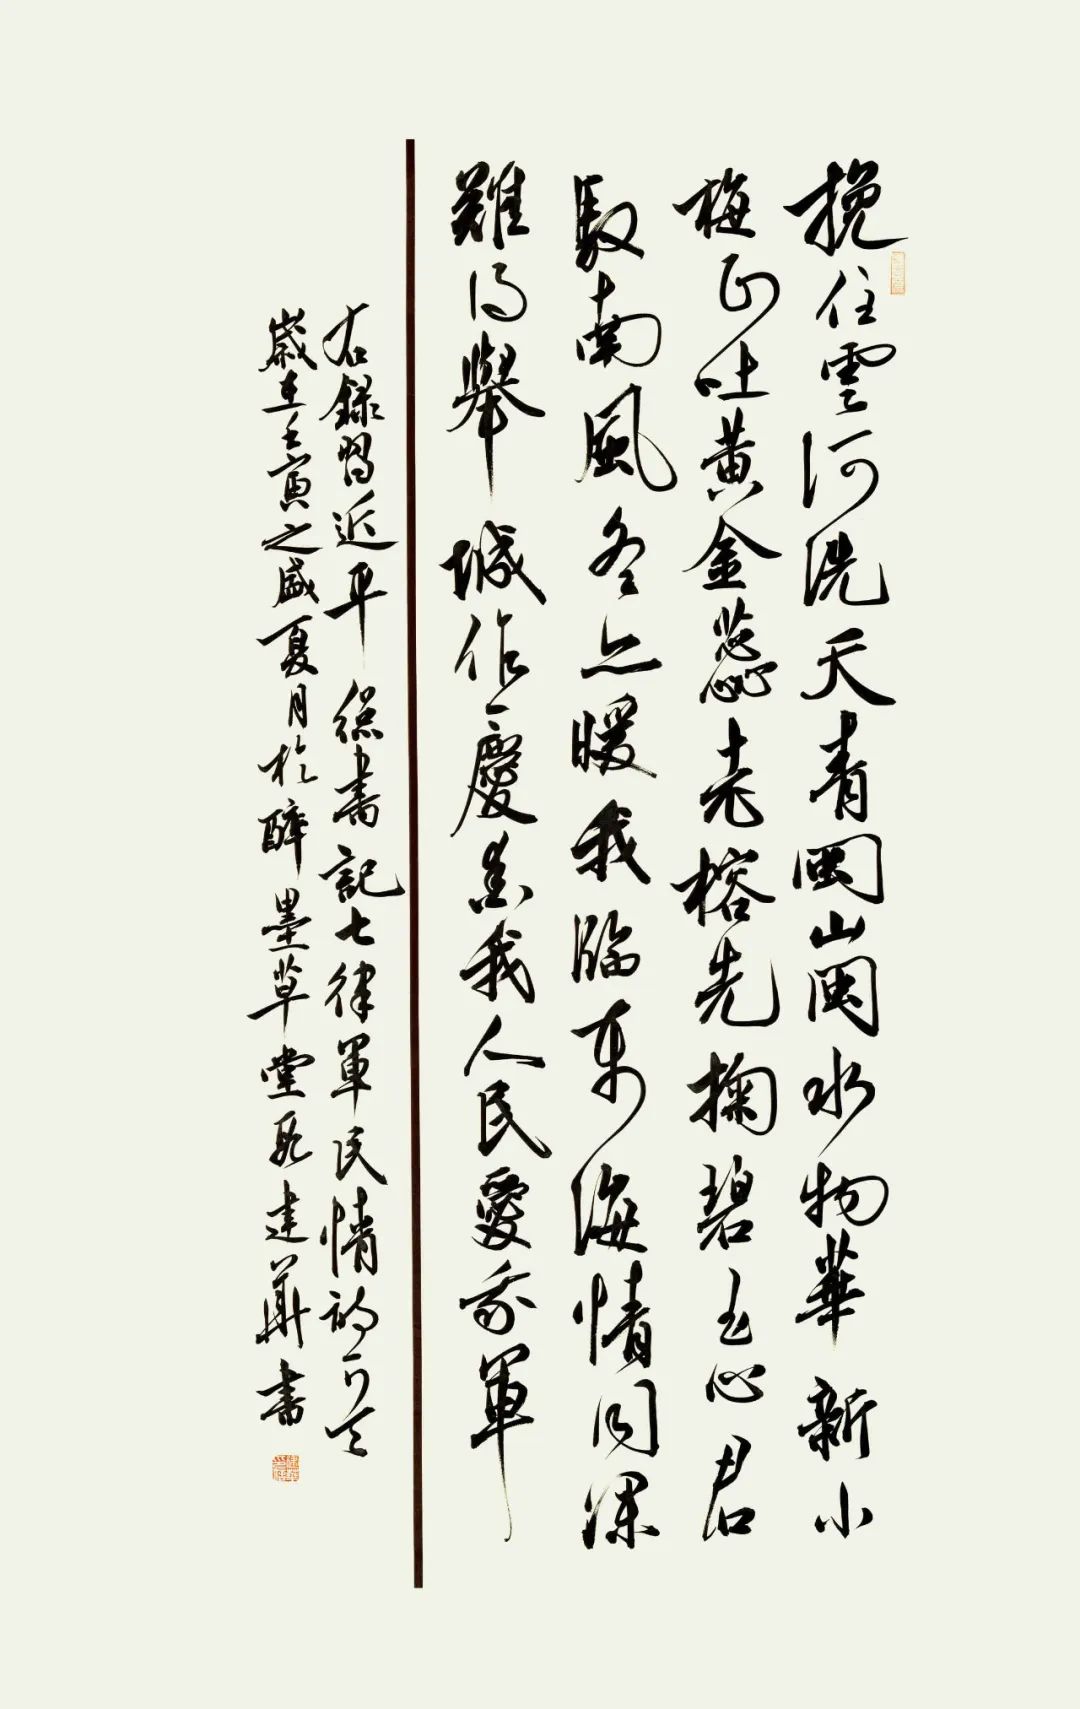 挽住雲河洗天青閩山閩水物華新小
梅正吐黄金蕊老榕先掬碧玉心君
馭南風冬亦暖我臨東海情同深
難得舉城作一慶愛我人民愛我軍
右錄習近平總書記七律軍民情
歲在壬寅之盛夏月於醉墨草堂建華書